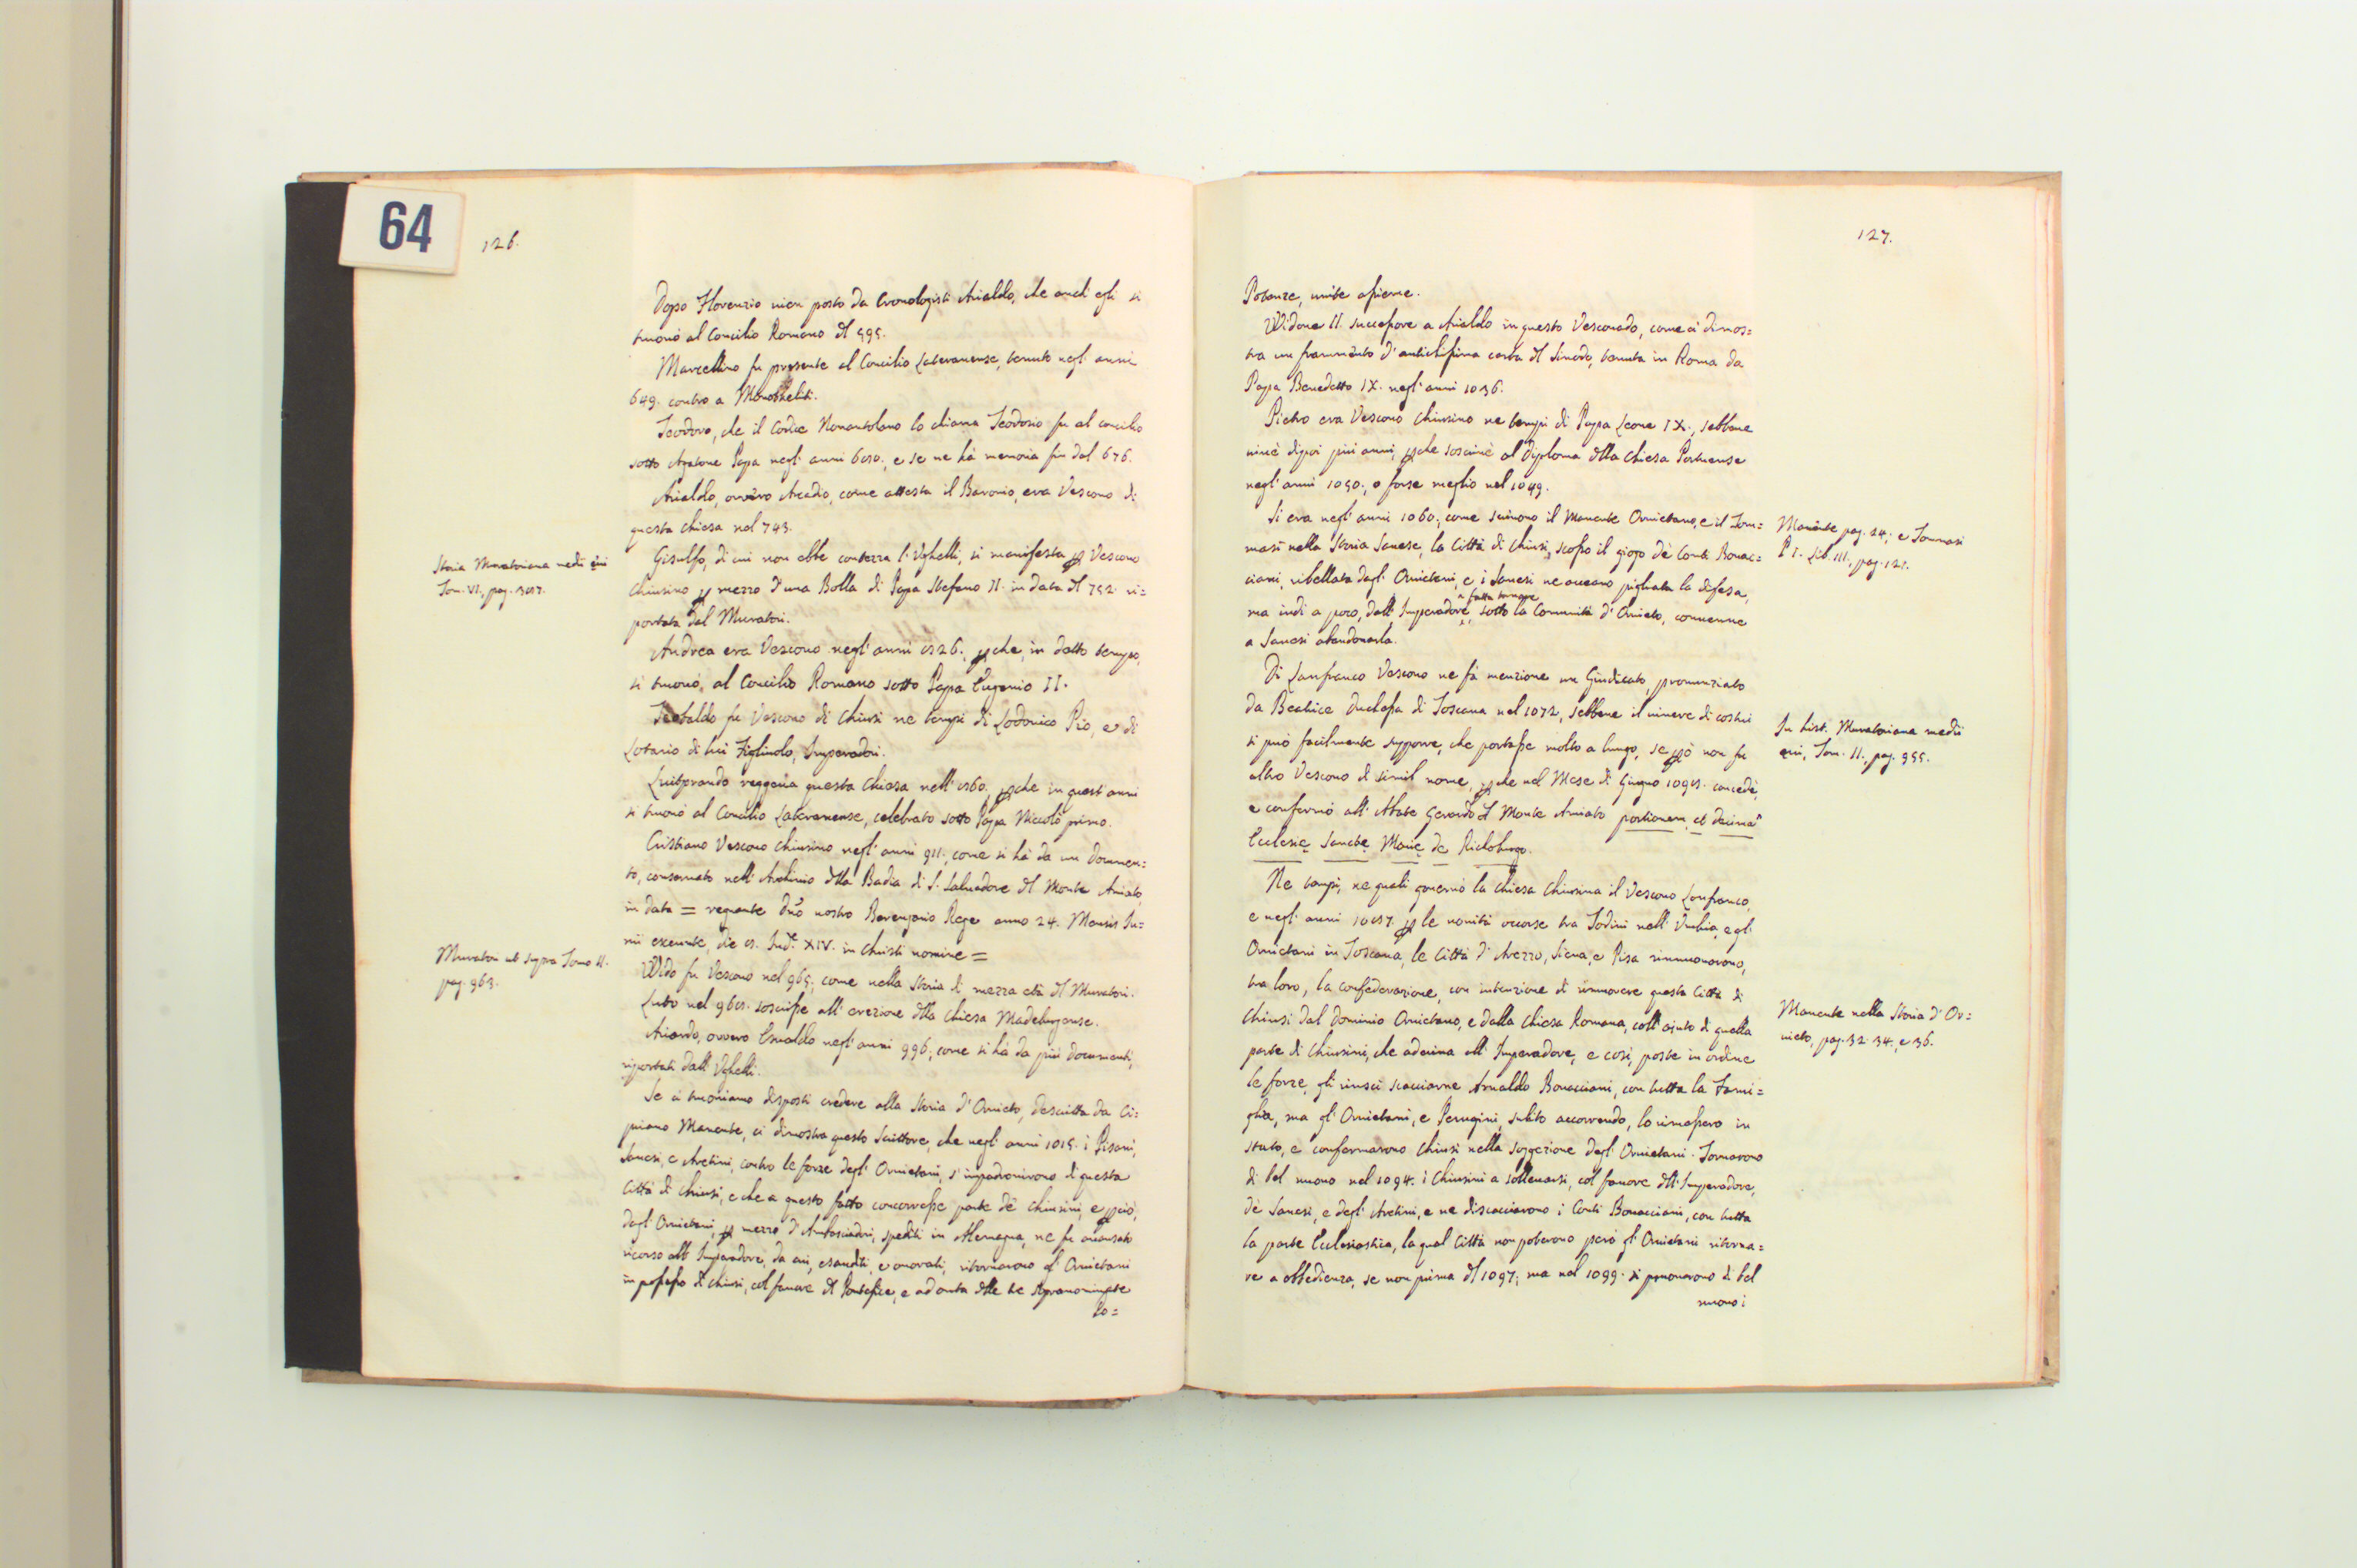 64
126.
Dopo Florenzio vien posto da Cronologisti Arialdo, che anch' egli si
truovò al Concilio Romano del 595.
Marcellino fu presente al Concilio Lateranense, tenuto negl' anni
649. contro a Monotheliti.
Teodoro, che il Codice Nonantolano lo chiama Teodosio fu al concilio
sotto Agatone Papa negl' anni 680., e se ne hà memoria fin dal 676.
Arialdo, ovvero Arcadio, come attesta il Baronio, era Vescovo di
questa Chiesa nel 743.
Storia Muratoriana medii ævi
Tom. VI., pag. 387.
Gisulfo, di cui non ebbe contezza l' Vghelli, si manifesta per Vescovo
Chiusino per mezzo d' una Bolla di Papa Stefano II. in data del 752. ri=
portata dal Muratori.
Andrea era Vescovo negl' anni 826., perche, in detto tempo,
si truovò, al Concilio Romano sotto Papa Eugenio II.
Teobaldo fu Vescovo di Chiusi ne tempi di Lodovico Pio, e di
Lotario di lui Figliuolo, Imperadori.
Luitprando reggeva questa Chiesa nell' 860., perche in quest' anni
si truovò al Concilio Lateranense, celebrato sotto Papa Niccolò primo.
Cristiano Vescovo Chiusino negl' anni 911., come si hà da un documen=
to, conservato nell' Archivio della Badia di S. Salvadore del Monte Amiato,
in data = regnante dnō nostro Berengario Rege anno 24. Mensis Ju=
nii exeunte, die 8. Ind.e XIV. in Christi nomine =
Muratori ut supra Tomo II.
pag. 963.
Wido fu Vescovo nel 965., come nella Storia di mezza età del Muratori.
Luto nel 968. soscrisse all' erezione della Chiesa Madeburgense.
Ariardo, ovvero Esvaldo negl' anni 996., come si hà da più documenti,
riportati dall' Vghelli.
Se ci truoviamo disposti credere alla Storia d' Orvieto, descritta da Ci=
priano Manente, ci dimostra questo Scrittore, che negl' anni 1015. i Pisani,
Sanesi, e Aretini, contro le forze degl' Orvietani, s' impadronirono di questa
Città di Chiusi, e che a questo fatto concorresse parte de' Chiusini, e perciò,
degl' Orvietani, per mezzo d' Ambasciadori, spediti in Alemagna, ne fu avanzato
ricorso all' Imperadore, da cui, esauditi, e onorati, ritornarono gl' Orvietani
in possesso di Chiusi, col favore del Pontefice, e ad onta delle tre sopranominate
Po=
127.
Potenze, unite assieme.
Widone II. successore a Arialdo in questo Vescovado, come ci dimos=
tra un frammento d' antichissima carta del Sinodo, tenuta in Roma da
Papa Benedetto IX. negl' anni 1036.
Pietro era Vescovo Chiusino ne tempi di Papa Leone IX., sebbene
vivè dipoi più anni, perche soscrivè al Diploma della Chiesa Portuense
negl' anni 1050., o forse meglio nel 1049.
Si era negl' anni 1060., come scrivono il Manente Orvietano, e il Tom=
masi nella Storia Sanese, la Città di Chiusi, scosso il giogo de' Conti Bonac=
ciani, ribellata dagl' Orvietani, e i Sanesi ne aveano pigliata la difesa,
ma indi a poco, dall' Imperadore, fatta tornare sotto la Comunità d' Orvieto, convenne
a Sanesi abandonarla.
Manente pag. 24., e Tommasi
P. I. Lib. III., pag. 121.
Di Lanfranco Vescovo ne fà menzione un Giudicato, pronunziato
da Beatrice Duchessa di Toscana nel 1072, sebbene il vivere di costui
si può facilmente supporre, che portasse molto a lungo, se però non fu
altro Vescovo di simil nome, perche nel Mese di Giugno 1098. concedè,
e confermò all' Abate Gerardo del Monte Amiato portionem, et decimam
Ecclesię Sanctę Marię de Richoburgo.
In hist. Muratoriana medii
ævi, Tom. II., pag. 955.
Ne tempi, ne quali governò la Chiesa Chiusina il Vescovo Lonfranco,
e negl' anni 1087. per le novità occorse tra Todini nell' Vmbria, e gl'
Orvietani in Toscana, le Città d' Arezzo, Siena, e Pisa rinnuovarono,
tra loro, la confederazione, con intenzione di rimuovere questa Città di
Chiusi dal dominio Orvietano, e dalla Chiesa Romana, coll' ajuto di quella
parte di Chiusini, che aderiva all' Imperadore, e così, poste in ordine
le forze, gli riuscì scacciarne Arnaldo Bonacciani, con tutta la Fami=
glia, ma gl' Orvietani, e Perugini, subito accorrendo, lo rimessero in
stato, e confermarono Chiusi nella suggezione degl' Orvietani. Tornarono
di bel nuovo nel 1094. i Chiusini a sollevarsi, col favore dell' Imperadore,
de' Sanesi, e degl' Aretini, e ne discacciarono i Conti Bonacciani, con tutta
la parte Ecclesiastica, la qual Città non poterono però gl' Orvietani ritorna=
re a obbedienza, se non prima del 1097; ma nel 1099. si pruovarono di bel
nuovo i
Manente nella Storia d' Or=
vieto, pag. 32. 34., e 36.